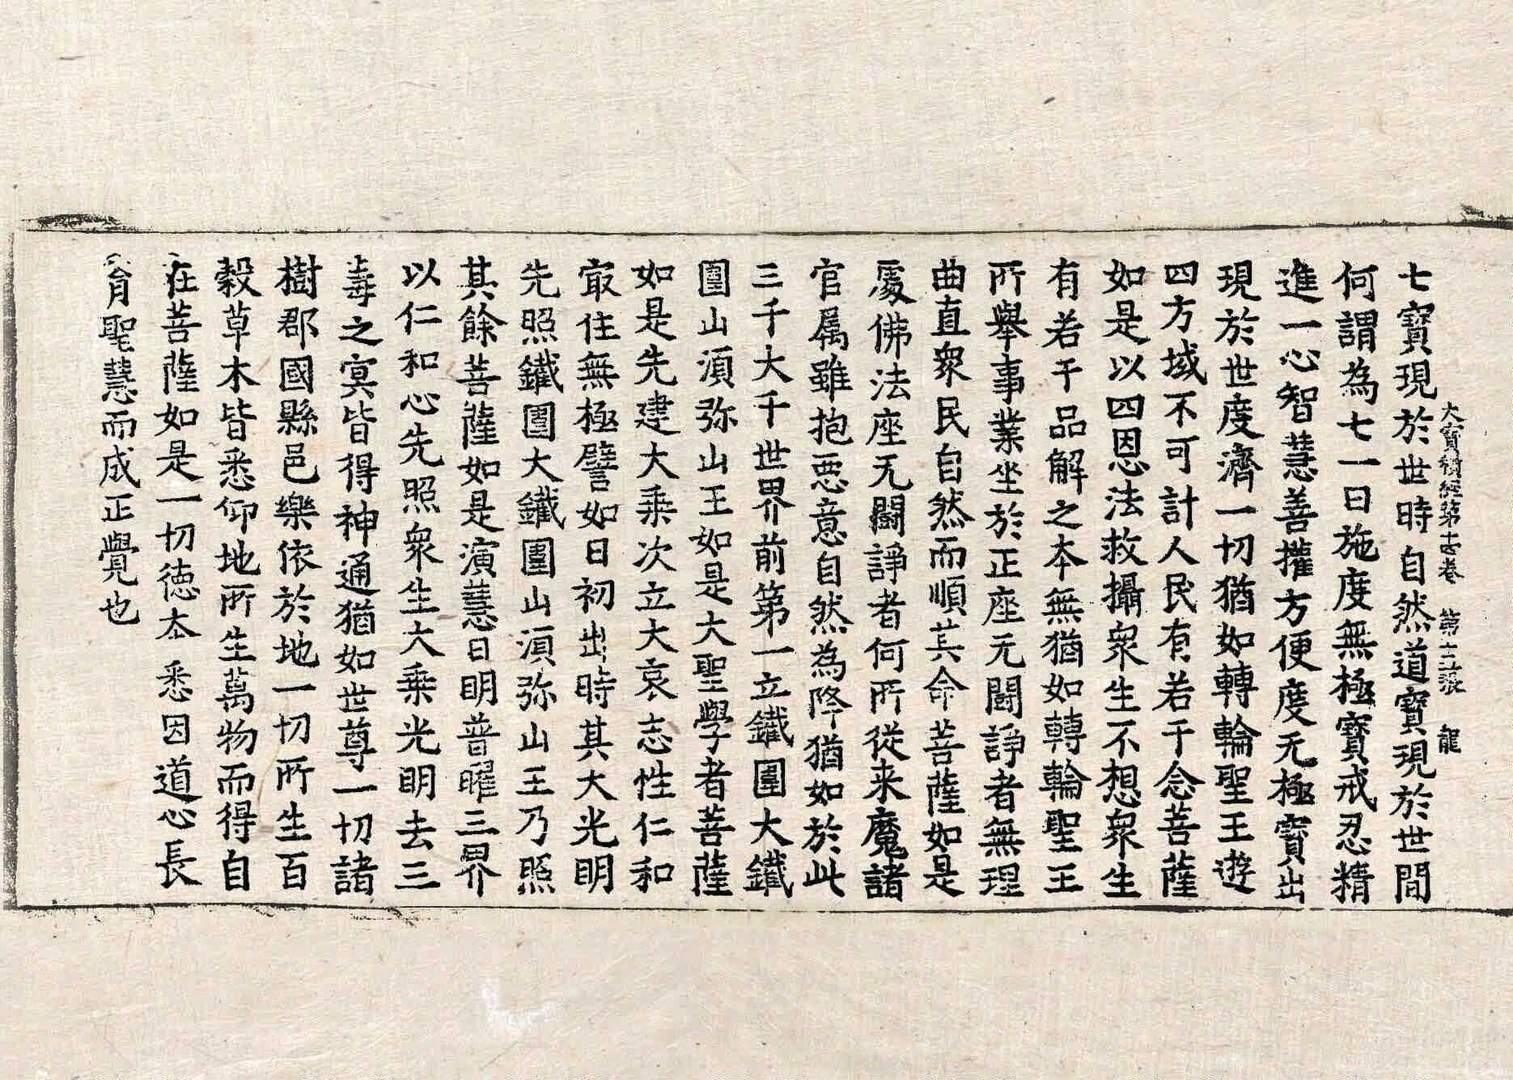 大寶積經第十一卷　第十二張　龍
七寶現於世時自然道寶現於世間
何謂為七一曰施度無極寶戒忍精
進一心智慧善權方便度无極寶出
現於世度濟一切猶如轉輪聖王遊
四方域不可計人民有若干念菩薩
如是以四恩法救攝衆生不想衆生
有若干品解之夲無猶如轉輪聖王
所舉事業坐於正座无鬪諍者無理
曲直衆民自然而順其命菩薩如是
處佛法座无鬪諍者何所從来魔諸
官属雖抱惡意自然為降猶如於此
三千大千世界前第一立鐵圍大鐵
圍山湏弥山王如是大聖學者菩薩
如是先建大乘次立大哀志性仁和
㝡住無極譬如日初出時其大光明
先照鐵圍大鐵圍山湏弥山王乃照
其餘菩薩如是演慧日明普曜三界
以仁和心先照衆生大乘光明去三
毒之冥皆得神通猶如世尊一切諸
樹郡國縣邑樂依於地一切所生百
穀草木皆悉仰地所生萬物而得自
在菩薩如是一切徳夲悉因道心長
育聖慧而成正覺也